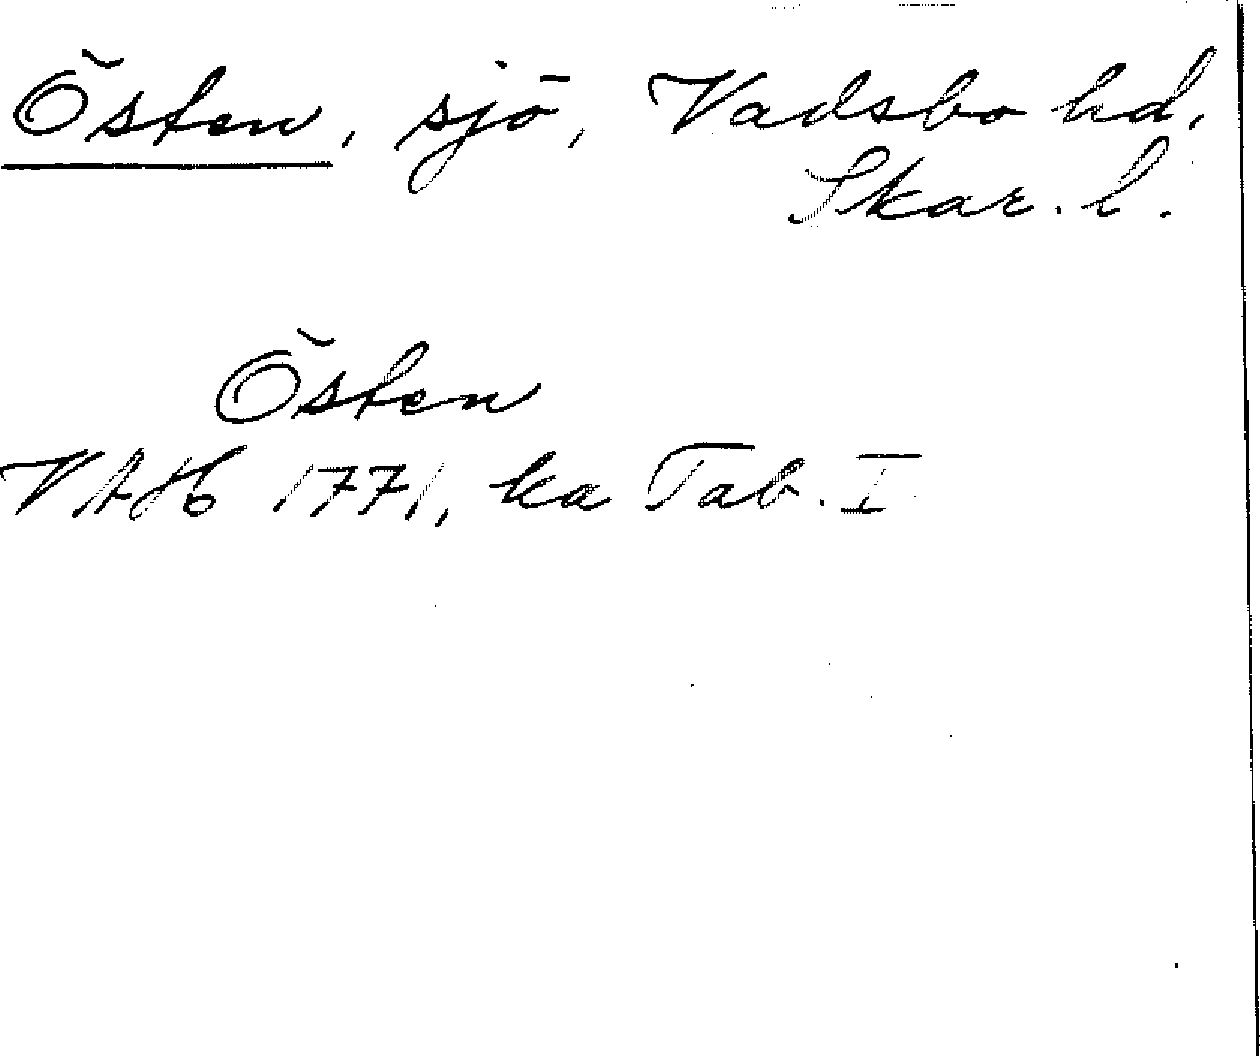 Östen, sjö, Vadsbo hd,
Skar. l.
Östen
VAH 1771, ka Tab. I